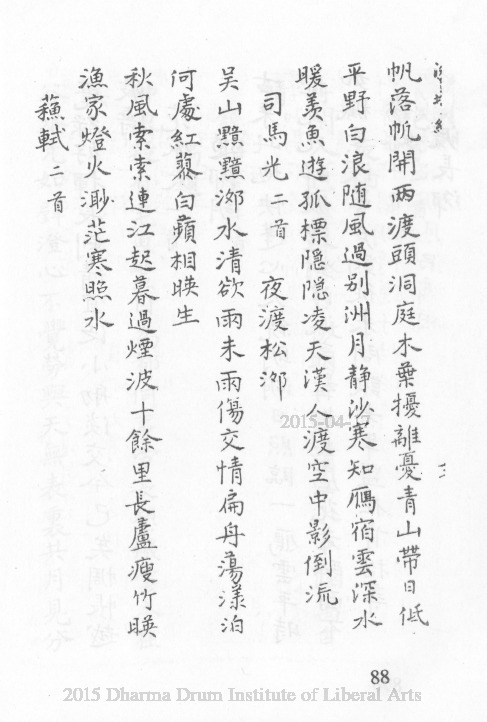 帆落帆開兩渡頭洞庭木葉擾離憂青山帶日低
平野白浪随風過別洲月静沙寒知鴈宿雲深水
暖羡魚遊孤標隐隐凌天漢人渡空中影倒流
司馬光二首 夜渡松㳍
吴山黯黯㳍水清欲雨未雨傷交情扁舟蕩漾泊
何處紅蓼白蘋相暎生
秋風索索連江起暮過煙波十餘里長蘆瘦竹暎
漁家燈火渺茫寒照水
蘓軾二首
2015-04-
88
2015 Dharma Drum Institute of Liberal Arts